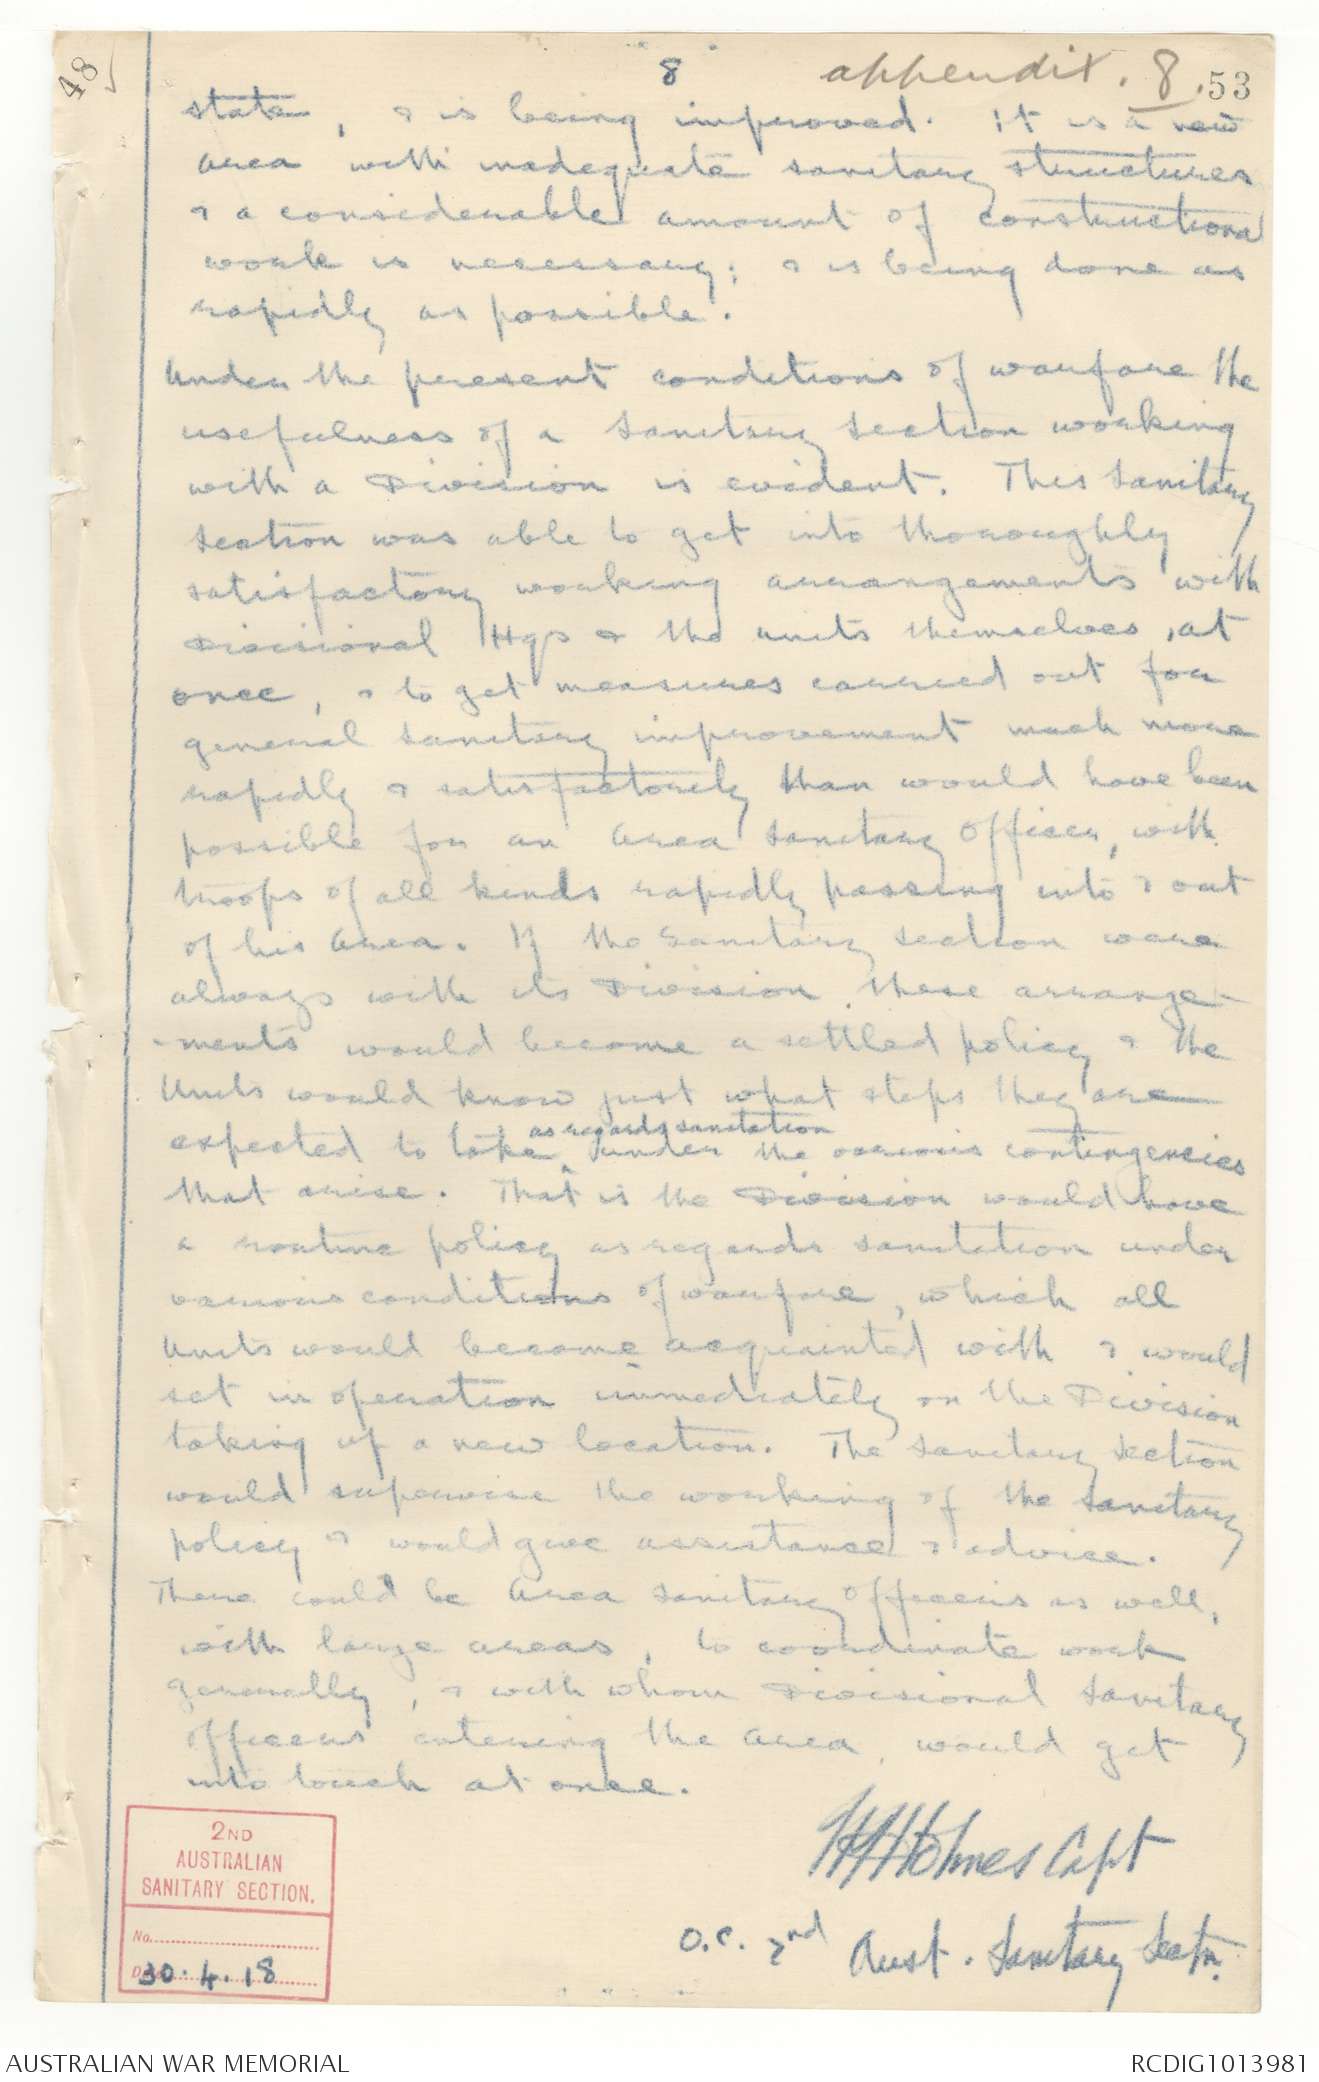 48
8
appendix. 8.
53
state, & is being improved. It is a new
area with inadequate sanitary structures
& a considerable amount of constructional
work is necessary; & is being done as
rapidly as possible.
Under the present conditions of warfare the
usefulness of a Sanitary Section working
with a Division is evident. This Sanitary
Section was able to get into thoroughly
satisfactory working arrangements with
Divisional Hqs & the units themselves, at
once, & to get measures carried out for
general sanitary improvement much more
rapidly & satisfactorily than would have been
possible for an Area Sanitary Officer, with
troops of all kinds rapidly passing into & out
of his Area. If the Sanitary Section were
always with its Division, these arrange-
-ments would become a settled policy & the
Units would know just what steps they are
as regards sanitation
expected to take ^ under the various contingencies
that arise. That is the Division would have
a routine policy as regards sanitation under
various conditions of warfare, which all
Units would become acquainted with & would
set in operation immediately on the Division
taking up a new location. The Sanitary Section
would supervise the working of the Sanitary
policy & would give assistance & advice.
There could be Area Sanitary Officers as well,
with large areas, to coordinate work
generally, & with whom Divisional Sanitary
Officers entering the Area, would get
into touch at once.
Holmes Capt
O.C. 2nd Aust. Sanitary Sectn.
2ND
AUSTRALIAN
SANITARY SECTION.
No.
30.4.18
AUSTRALIAN WAR MEMORIAL
RCDIG1013981